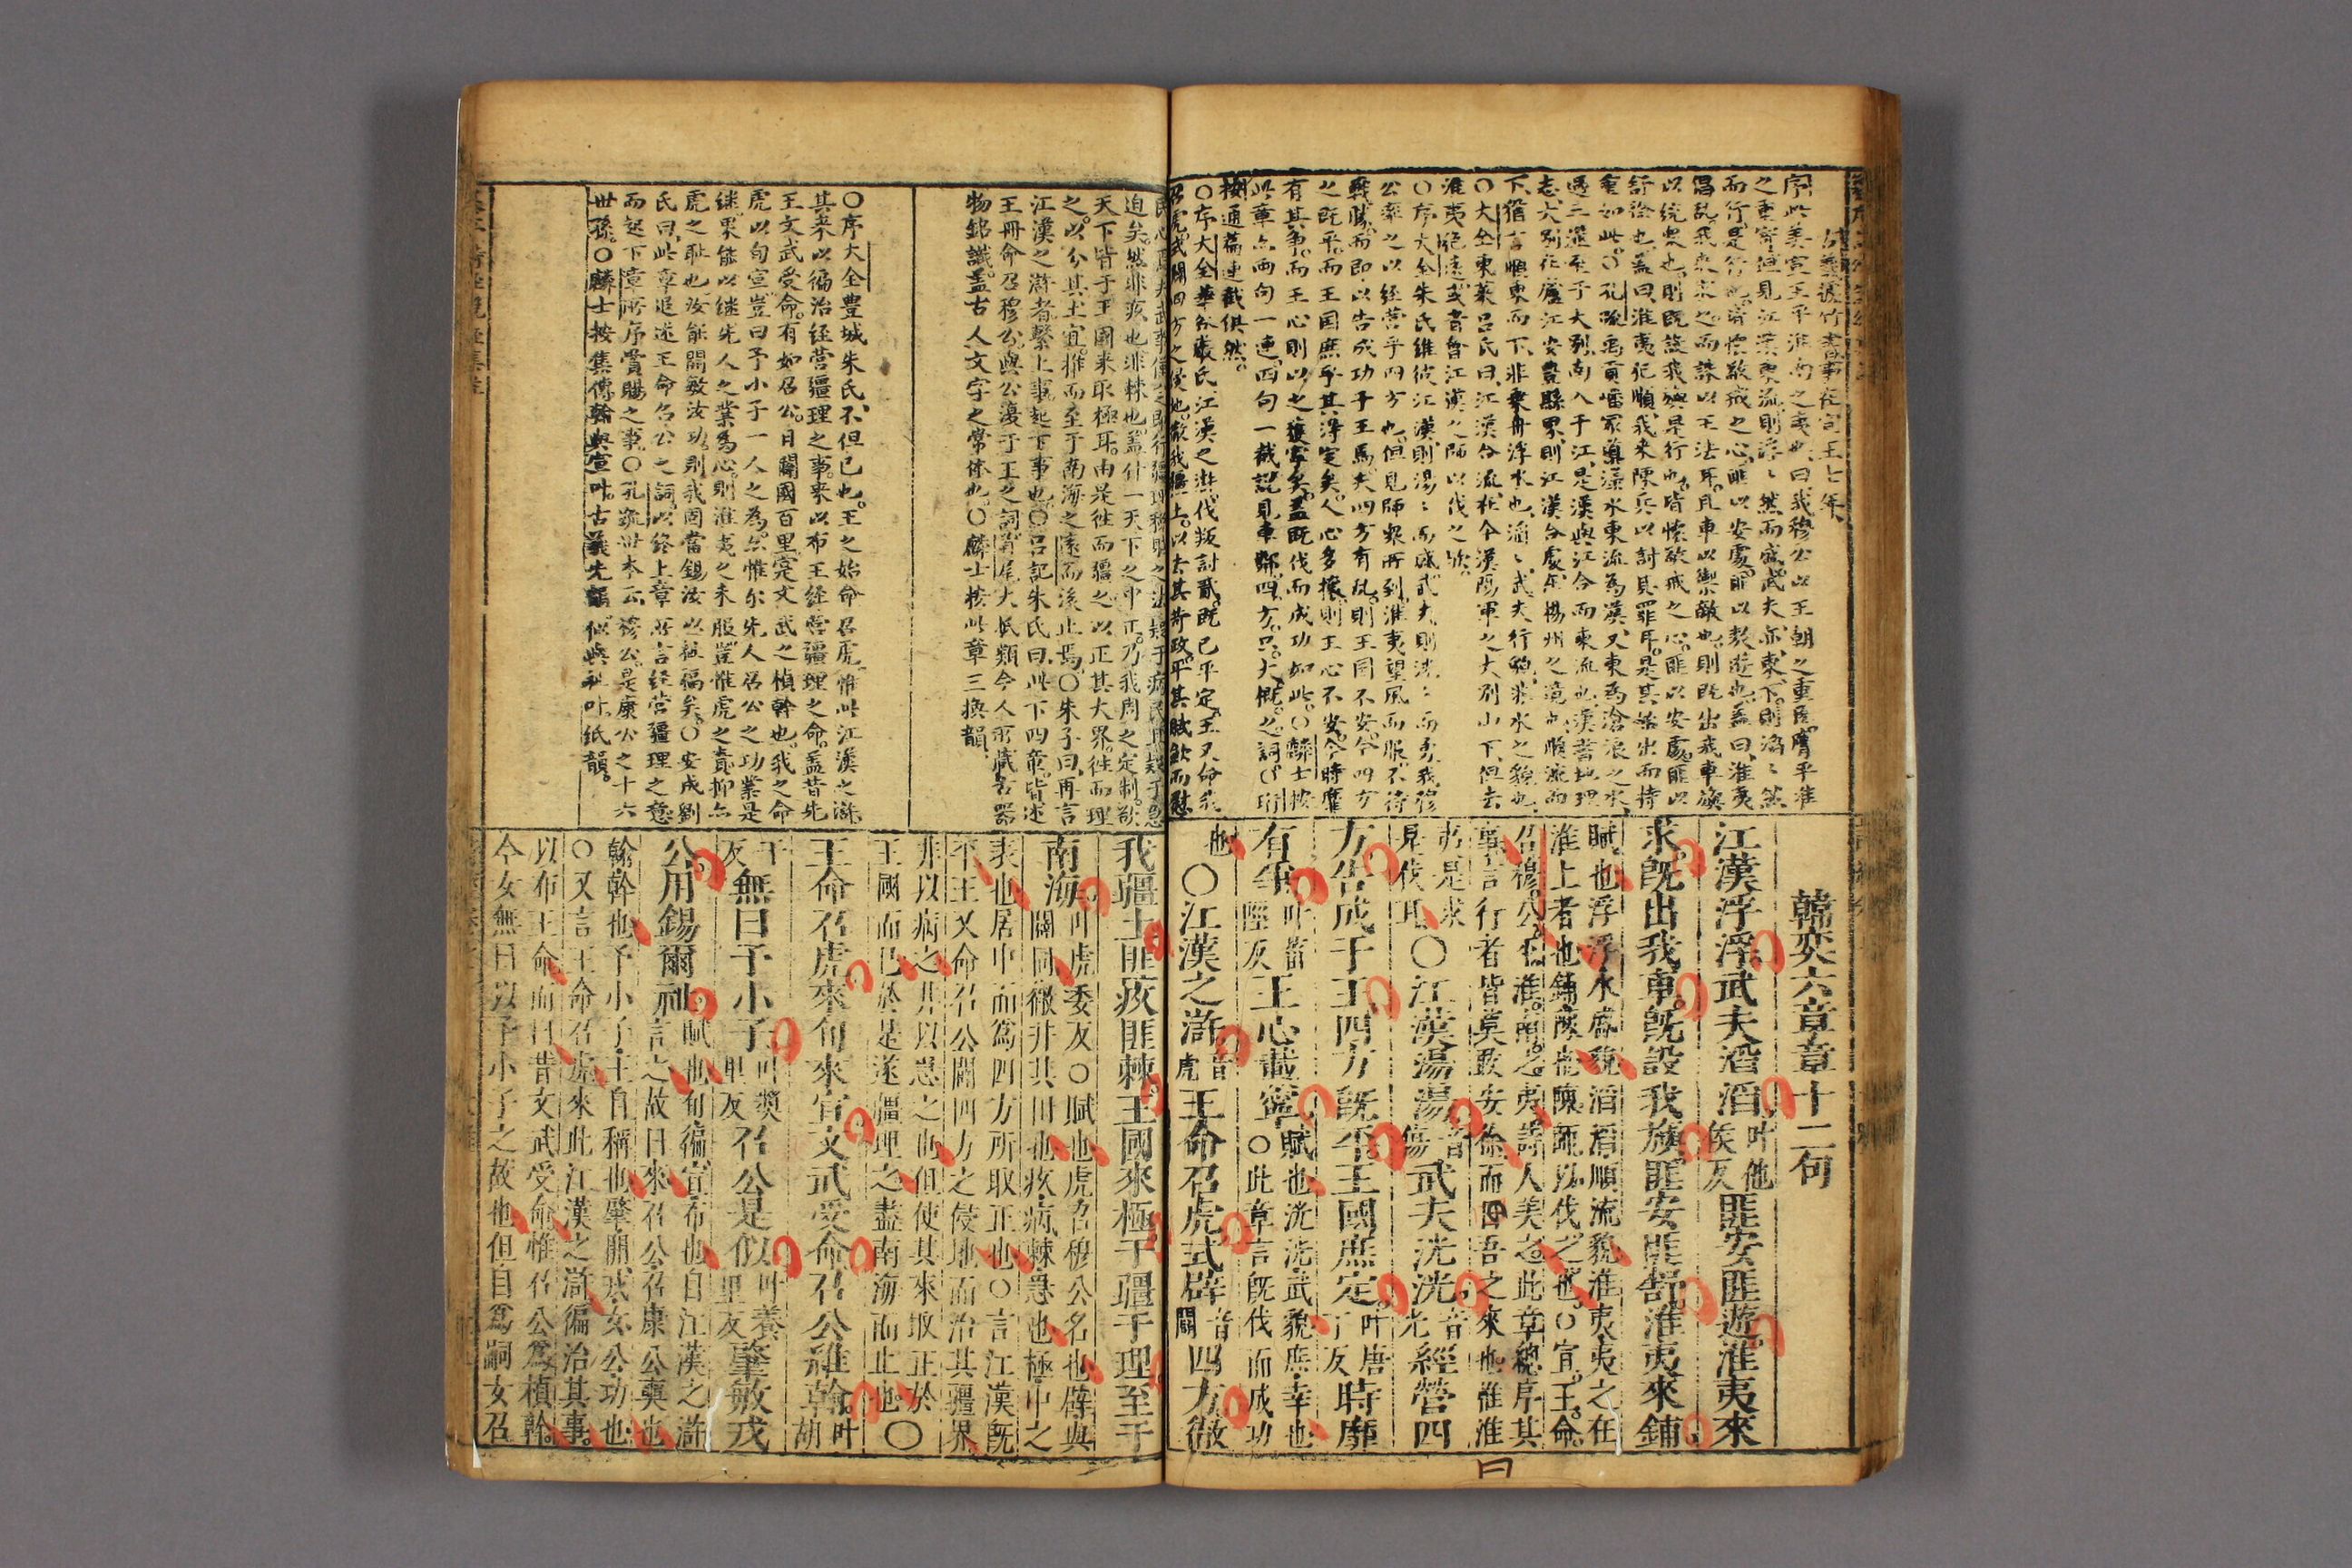 序此美宣王平淮南之夷也曰我穆公以王朝之重臣膺平淮
之重寄但見江漢東流則浮〻然而盛武夫亦東下則滔〻然
而行是行也皆懷敬戒之心匪以安處匪以敖遊也蓋曰淮夷
昌亂我來求之而誅以王法耳且車以禦敵也則既出我車旗
以統衆也則既設我旟是行也皆懷敬戒之心匪以安處匪以
舒徐也蓋曰淮夷犯順我來陳兵以討其罪耳是其始出而持
重如此○孔疏禹貢嶓冢導漾水東流為漢又東為滄浪之水
過三澨至于大別南入于江是漢與江合而東流也漢書地理
志大別在廬江安豐縣界則江漢合處在揚州之境也順流而
下滔言順東而下非乘舟浮水也滔〻武夫行貌非水之貌也
○大全東萊呂氏曰江漢合流在今漢陽軍之大別山下但去
淮夷絕遠或者會江漢之師以伐之歟
○序大全朱氏維彼江漢則湯〻而盛武夫則洸〻而勇我穆
公率之以經營乎四方也但見師衆所到淮夷望風而服不待
戰勝而即以告成功于王焉夫四方有亂則王國不安今四方
之既平而王國庶乎其淂定矣人心多擾則王心不安今時靡
有其爭而王心則以之獲寧矣蓋既伐而成功如此○麟士按
此章亦兩句一連四句一截説見車舝四方只大槪之詞
按通篇連截俱然
○序大全華谷嚴氏江漢之滸伐叛討貳既已平定王又命我
召虎式闢四方之侵地徹我疆土以去其苛政平其賦歛而慰
韓奕六章章十二句
江漢浮浮武夫滔滔叶他侯反匪安匪遊淮夷來
求既出我車既設我旟匪安匪舒淮夷來鋪
賦也浮浮水盛貌滔滔順流貌淮夷夷之在
淮上者也鋪陳也陳師以伐之也○宣王命
召穆公平淮南之夷詩人美之此章總序其
事言行者皆莫敢安徐而曰吾之來也惟淮
夷是求是伐耳○江漢湯湯音傷武夫洸洸音光經營四
方告成于王四方既平王國庶定叶唐丁反時靡
有爭叶菑陘反王心載寧○賦也洸洸武貌庶幸也此章言既伐而成功
也○江漢之滸音虎王命召虎式辟音闢四方徹
民心
迫矣然非疚也非棘也蓋什一天下之中正乃我周之定制欲
天下皆于王國來取極耳由是往而疆之以正其大界往而理
之以分其土宜推而至于南海之遠而後止焉○朱子曰再言
江漢之滸者繫上事起下事也○呂記朱氏曰此下四章皆述
王冊命召穆公與公復于王之詞首尾大抵類今人所藏古器
物銘識蓋古人文字之常体也○麟士按此章三換韻
○序大全豊城朱氏不但已也王之始命召虎惟此江漢之滸
其來以徧治經營疆理之事來以布王經營疆理之命蓋昔先
王文武受命有如召公日闢國百里寔文武之楨幹也我之命
虎以旬宣豈曰予小子一人之為亦惟尔先人召公之功業是
継果能以継先人之業為心則淮夷之未服豈惟虎之責抑亦
虎之耻也汝能開敏汝功則我固當錫汝以祉福矣○安成劉
氏曰此章追述王命召公之詞以終上章所言經營疆理之意
而起下章所序賞賜之事○孔疏世本云穆公是康公之十六
世孫○麟士按集傳翰與宣叶古義先韻似與祉叶紙韻
我疆土匪疚匪棘王國來極于疆于理至于
南海叶虎委反○賦也虎召穆公名也辟與闢同徹井其田也疚病棘急也極中之
表也居中而為四方所取正也○言江漢既
平王又命召公闢四方之侵地而治其疆界
非以病之非以急之也但使其來取正於
王國而已於是遂疆理之盡南海而止也○
王命召虎來旬來宣文武受命召公維翰叶胡
千反無曰予小子叶奬里反召公是似叶養里反肇敏戎
公用錫爾祉賦也旬徧宣布也自江漢之滸言之故曰來召公召康公奭也
翰幹也予小子王自稱也肇開戎女公功也
○又言王命召虎來此江漢之滸徧治其事
以布王命而曰昔文武受命惟召公爲楨幹
今女無曰以予小子之故也但自爲嗣女召